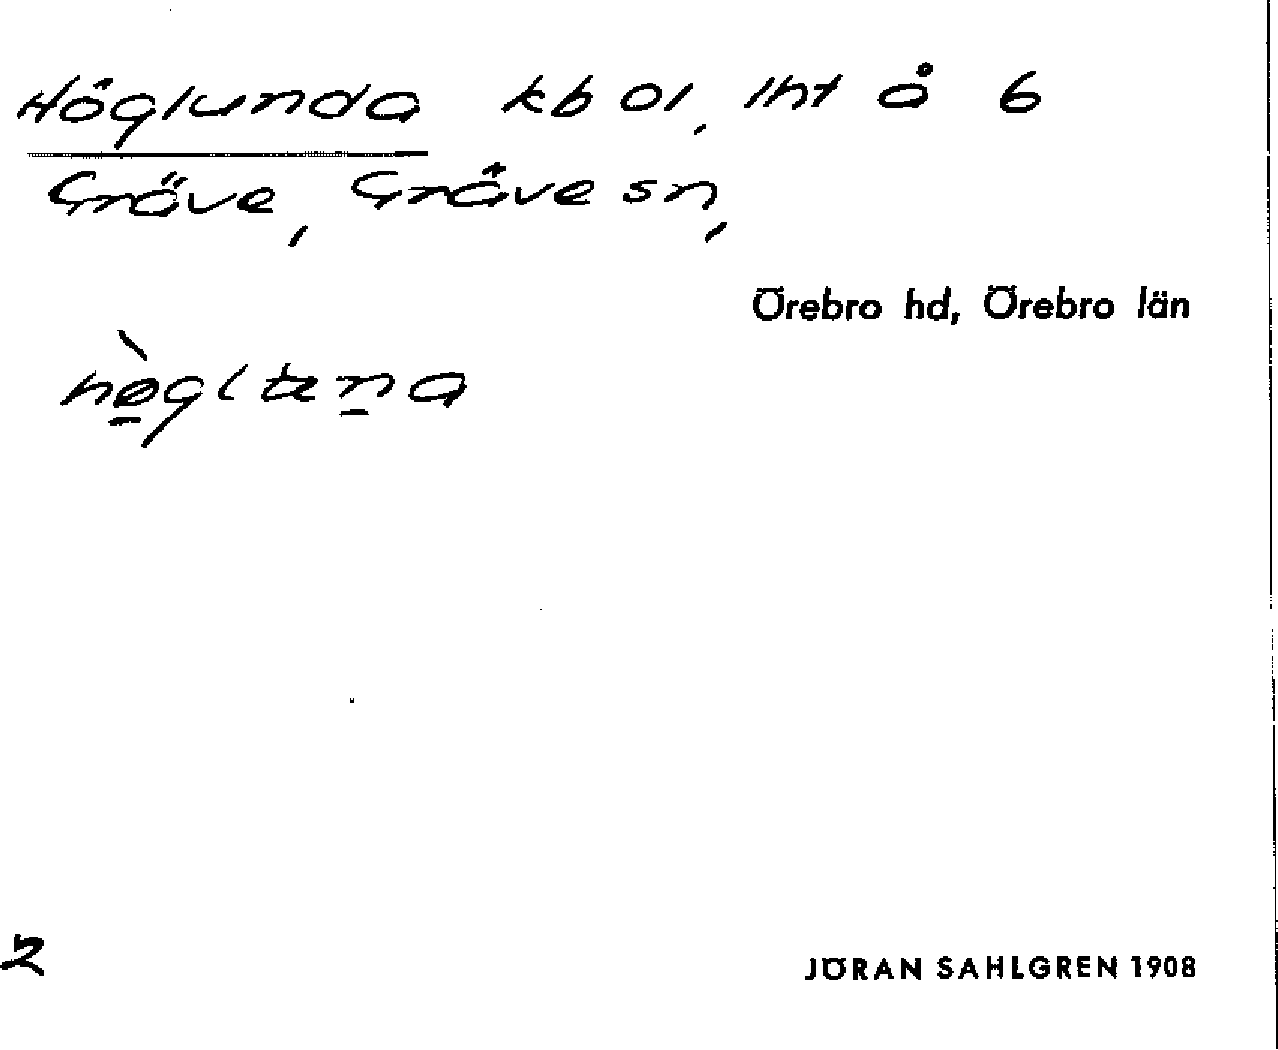 Höglunda kbol, lht å 6
Gräve, Gräve sn,
Örebro hd, Örebro län
2
JÖRAN SAHLGREN 1908